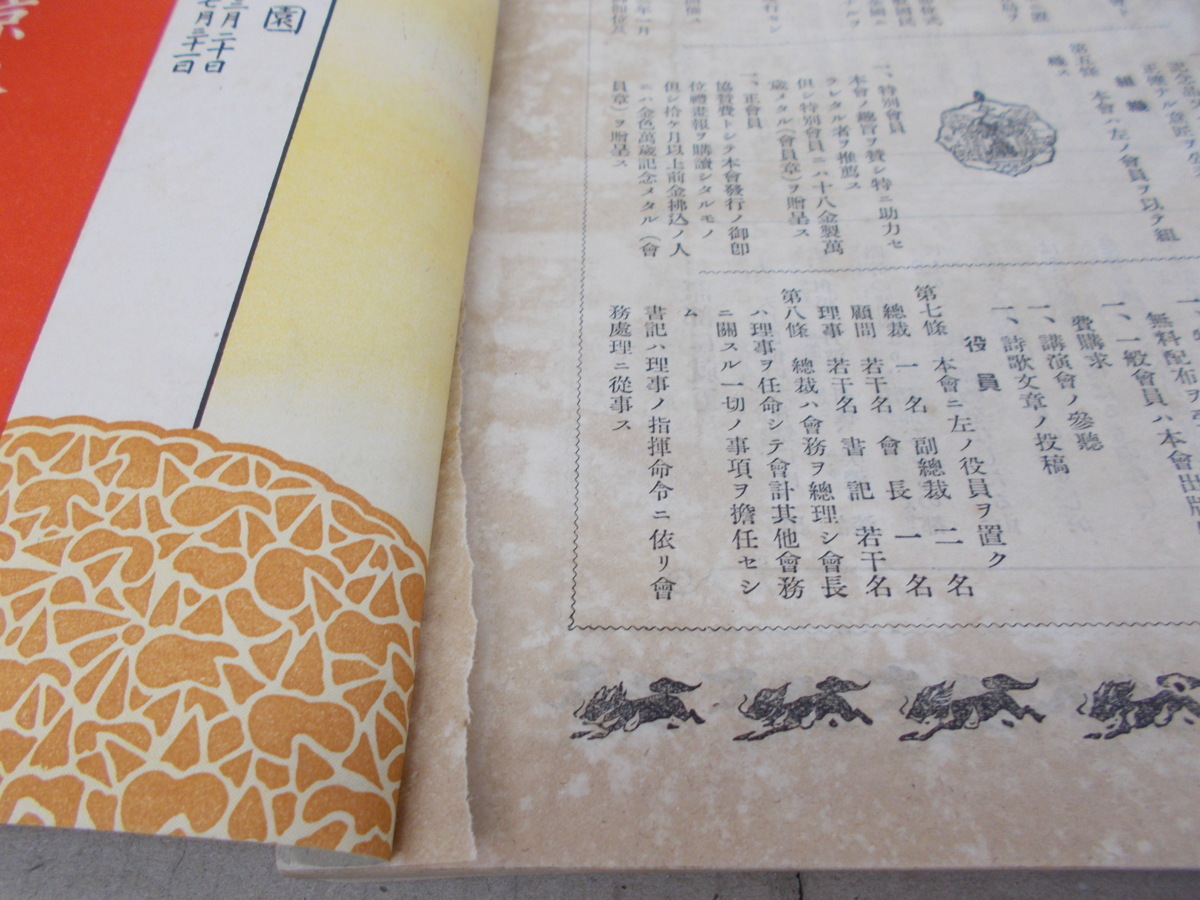 第五條
組織
本會ハ左ノ會員ヲ以テ組
織ス
一、特別會員
本會ノ趣旨ヲ賛シ特ニ助力セ
ラレタル者ヲ推薦ス
但シ特別會員ニハ十八金製萬
歳メタル(會員章)ヲ贈呈ス
一、正會員
協賛費トシテ本會發行ノ御卽
位禮畫報ヲ購讀シタルモノ
但シ拾ケ月以上前金拂込ノ人
ニハ金色萬歳記念メタル(會
員章)ヲ贈呈ス
無料配布
一、一般會員ハ本會出版
費購求
一、講演會ノ參聽
一、詩歌文章ノ投稿
役員
第七條 本會ニ左ノ役員ヲ置ク
總裁 一名 副總裁 二名
顧問 若干名 會長 一名
理事 若干名 書記 若干名
第八條 總裁ハ會務ヲ總理シ會長
ハ理事ヲ任命シテ會計其他會務
ニ關スル一切ノ事項ヲ擔任セシ
ム
書記ハ理事ノ指揮命令ニ依リ會
務處理ニ從事ス
園
三月二十日
七月三十一日